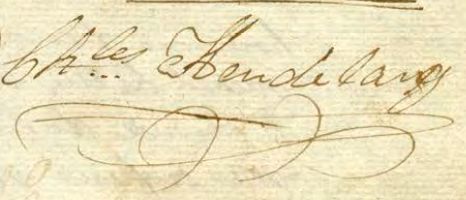 Chles Hendelang